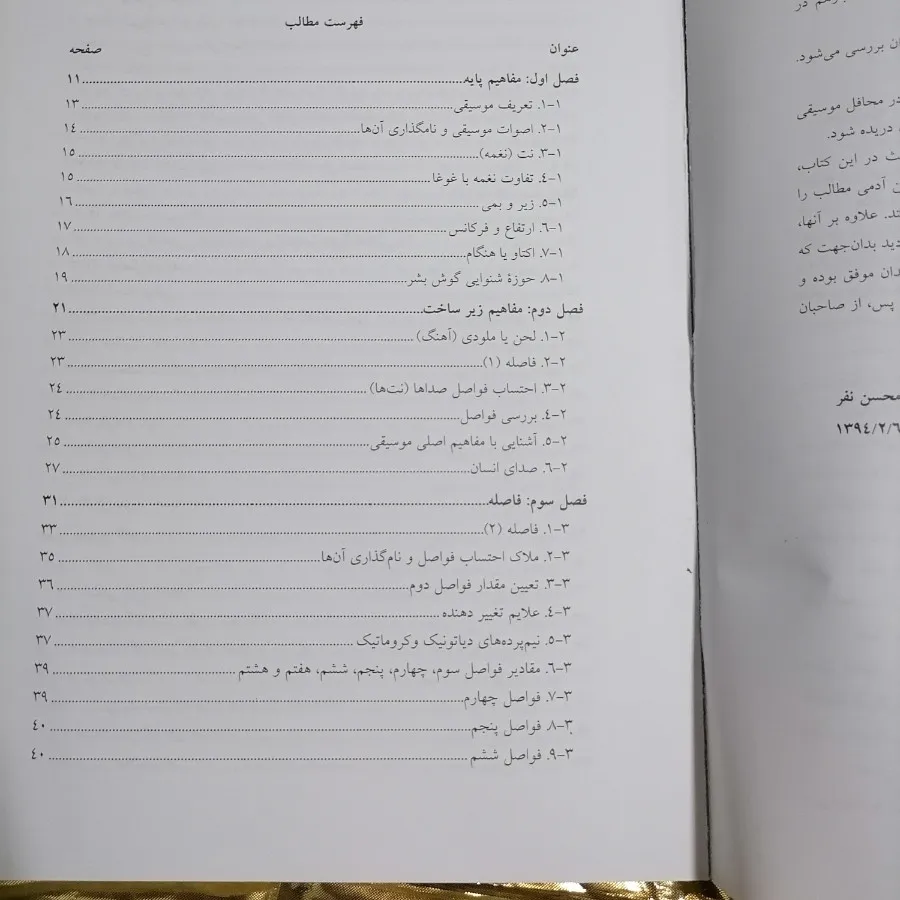 رهم در
ان بررسی می‌شود.
در محافل موسیقی
دریده شود.
ث در این کتاب،
ن آدمی مطالب را
تد. علاوه بر آنها،
دید بدان‌جهت که
دان موفق بوده و
پس، از صاحبان
محسن نفر
۱۳۹٤/۲/٦
فهرست مطالب
عنوان صفحه
فصل اول: مفاهیم پایه ۱۱
۱-۱. تعریف موسیقی ۱۳
۱-۲. اصوات موسیقی و نامگذاری آن‌ها ۱٤
۱-۳. نت (نغمه) ۱٥
۱-٤. تفاوت نغمه با غوغا ۱٥
۱-٥. زیر و بمی ۱٦
۱-٦. ارتفاع و فرکانس ۱۷
۱-۷. اکتاو یا هنگام ۱۸
۱-۸. حوزهٔ شنوایی گوش بشر ۱۹
فصل دوم: مفاهیم زیر ساخت ۲۱
۲-۱. لحن یا ملودی (آهنگ) ۲۳
۲-۲. فاصله (۱) ۲۳
۲-۳. احتساب فواصل صداها (نت‌ها) ۲٤
۲-٤. بررسی فواصل ۲٤
۲-٥. آشنایی با مفاهیم اصلی موسیقی ۲٥
۲-٦. صدای انسان ۲۷
فصل سوم: فاصله ۳۱
۳-۱. فاصله (۲) ۳۳
۳-۲. ملاک احتساب فواصل و نام‌گذاری آن‌ها ۳٥
۳-۳. تعیین مقدار فواصل دوم ۳٦
۳-٤. علایم تغییر دهنده ۳۷
۳-٥. نیم‌پرده‌های دیاتونیک وکروماتیک ۳۷
۳-٦. مقادیر فواصل سوم، چهارم، پنجم، ششم، هفتم و هشتم ۳۹
۳-۷. فواصل چهارم ۳۹
۳-۸. فواصل پنجم ٤۰
۳-۹. فواصل ششم ٤۰